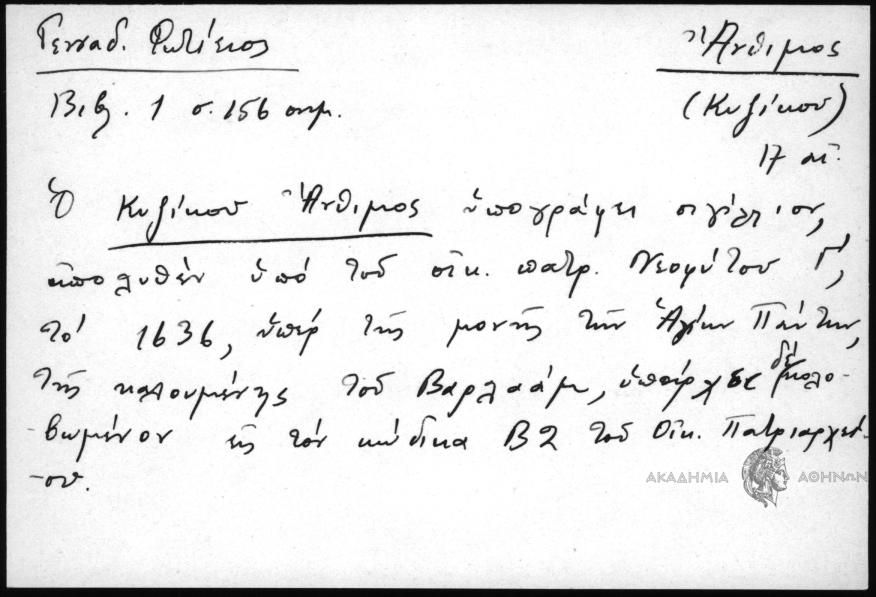 Γενναδ. Φωτίειος
Ἄνθιμος
Βιβ. 1 σ. 156 σημ.
(Κυζίκου)
17 αἰ.
Ὁ Κυζίκου Ἄνθιμος ὑπογράφει σιγίλλιον,
ἀπολυθέν ὑπό τοῦ οἰκ. πατρ. Νεοφύτου Γ',
τό 1636, ὑπέρ τῆς μονῆς τῶν Ἁγίων Πάντων,
τῆς καλουμένης τοῦ Βαρλαάμ, ὑπάρχει δέ κολο-
βωμένον εἰς τόν κώδικα Β2 τοῦ Οἰκ. Πατριαρχεί-
-ου.
ΑΚΑΔΗΜΙΑ ΑΘΗΝΩΝ